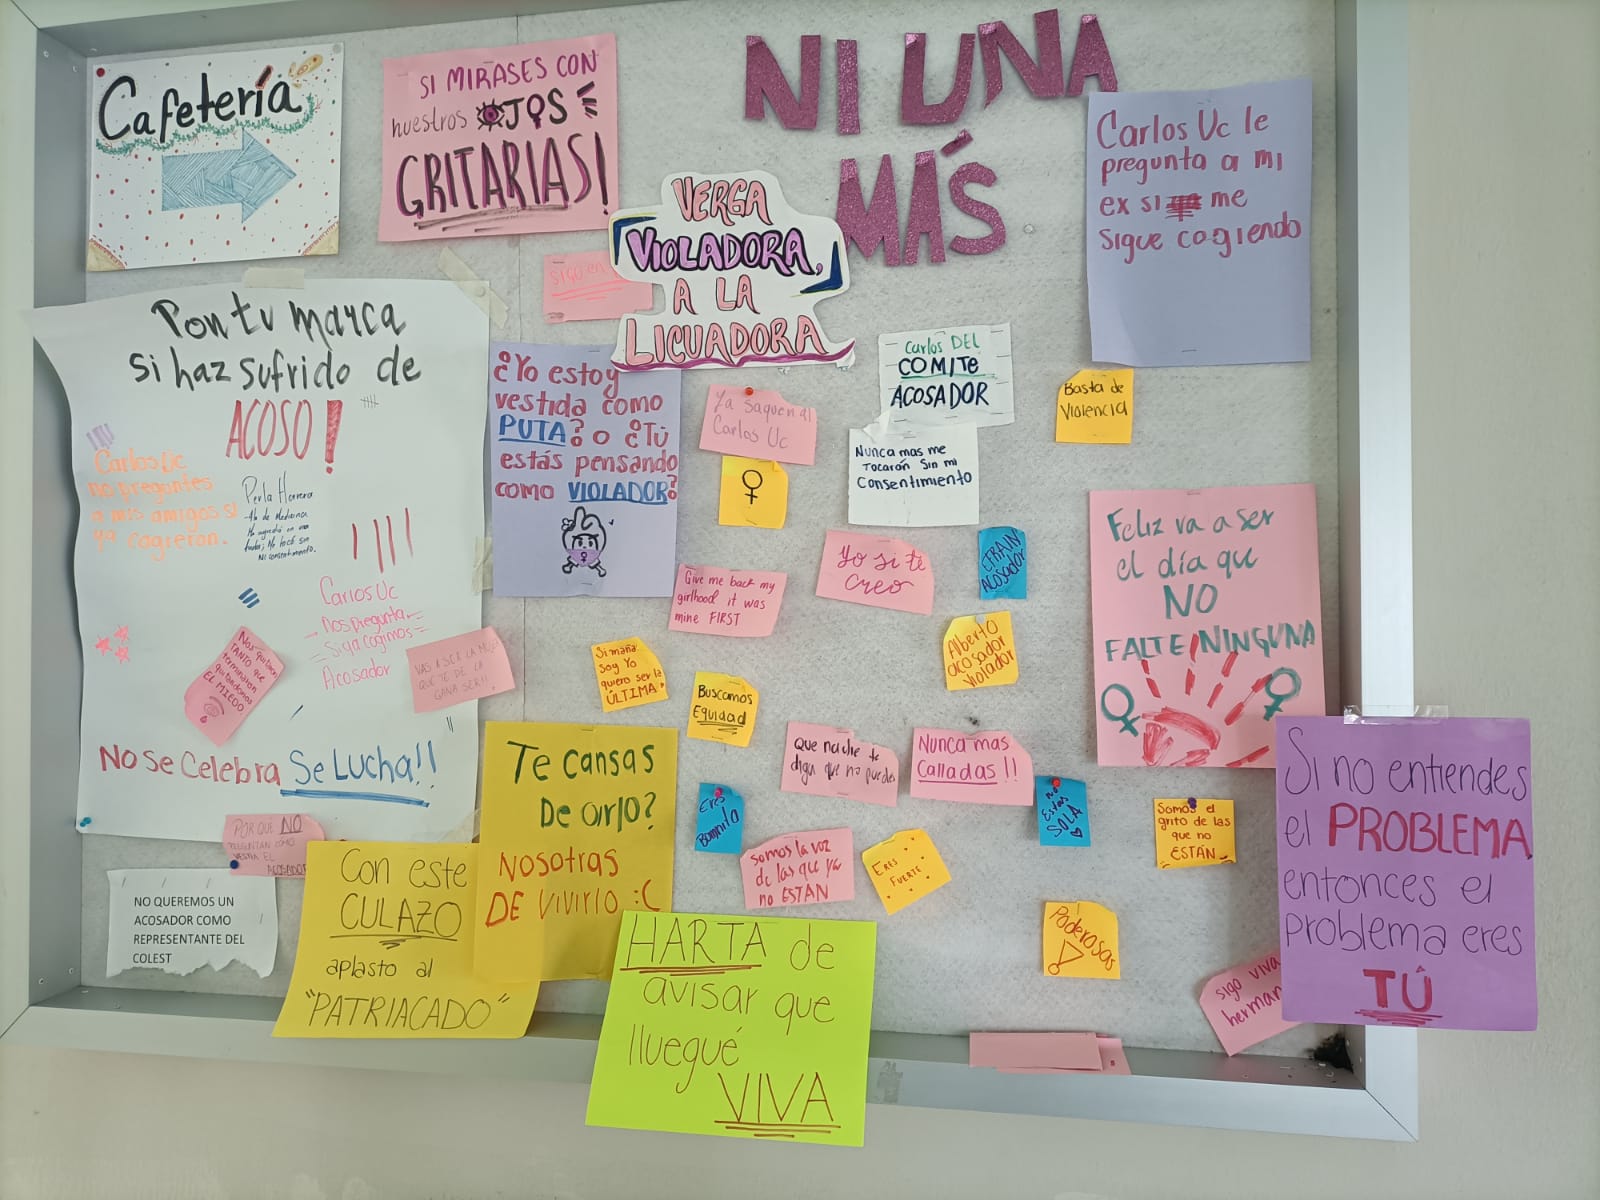 Cafetería
SI MIRASES CON
nuestros OJOS
GRITARIAS!
NI UNA
MÁS
VERGA
VIOLADORA,
A LA
LICUADORA
Carlos Uc le
pregunta a mi
ex si me
sigue cogiendo
sigo en
Pon tu marca
si haz sufrido de
ACOSO!
Carlos Uc
no preguntes
a mis amigos si
ya cogieron.
Perla Herrera
de Medicina
me tocó sin
mi consentimiento.
Carlos Uc
nos pregunta
si ya cogimos
Acosador
Nos quitaron
TANTO QUE
terminaron
quitándonos
EL MIEDO
VAS A SER LA MUJER
QUE TE DE LA
GANA SER!!
NO SE CELEBRA SE LUCHA!!
¿Yo estoy
vestida como
PUTA? o ¿TÚ
estás pensando
como VIOLADOR?
Carlos DEL
COMITE
ACOSADOR
Ya saquen al
Carlos Uc
Basta de
Violencia
Nunca mas me
Tocarán Sin mi
Consentimiento
Yo si te
creo
EFRAIN
Acosador
Give me back my
girlhood it was
mine FIRST
Alberto
acosador
violador
Si mañana
soy Yo
quiero ser la
ÚLTIMA
Buscamos
Equidad
Feliz va a ser
el día que
NO
FALTE NINGUNA
Te cansas
De oirlo?
NOSOTRAS
DE VIVIRLO :(
Que nadie te
diga que no puedes
Nunca mas
Calladas!!
Eres
Bonnita
no
Estás
SOLA
Somos el
grito de las
que no
ESTÁN
Somos la voz
de las que ya
no ESTAN
ERES
FUERTE
Si no entiendes
el PROBLEMA
entonces el
problema eres
TÚ
POR QUE NO
PREGUNTAN COMO
VESTIA EL
ACOSADOR
NO QUEREMOS UN
ACOSADOR COMO
REPRESENTANTE DEL
COLEST
Con este
CULAZO
aplasto al
"PATRIACADO"
HARTA de
avisar que
lluegué
VIVA
Poderosas
sigo viva
herman